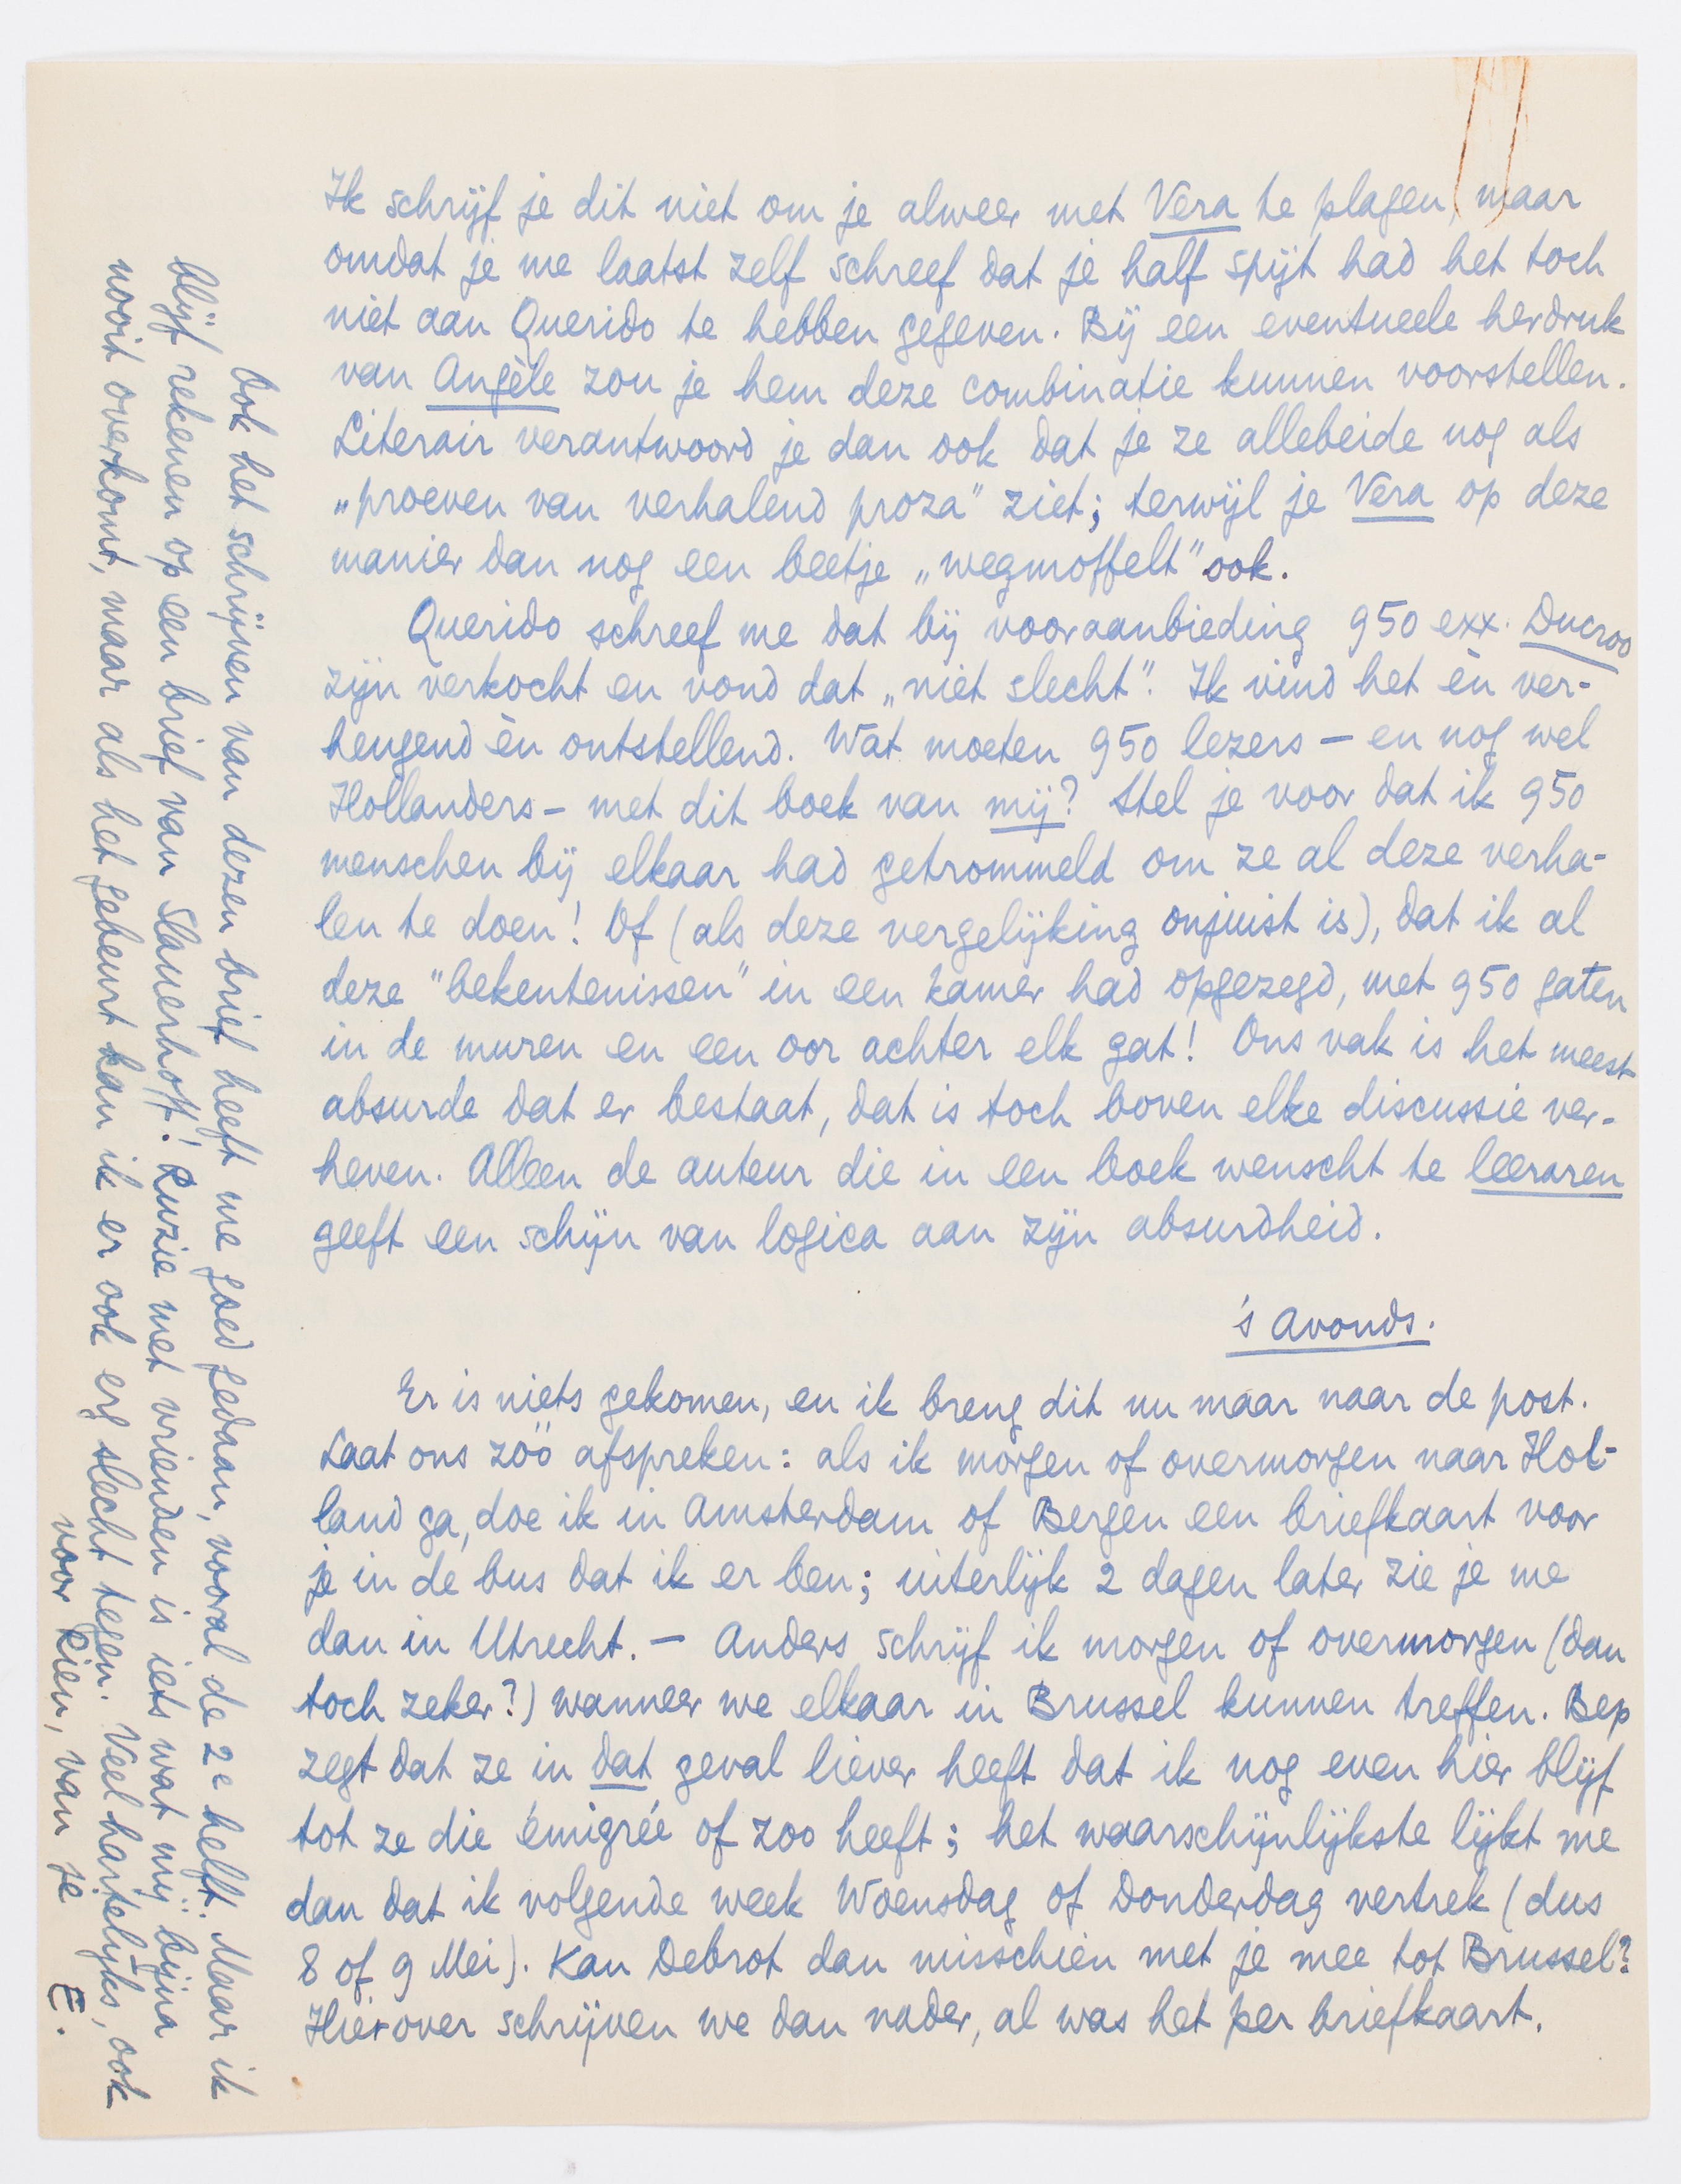 Ik schrijf je dit niet om je alweer met Vera te plagen, maar
omdat je me laatst zelf schreef dat je half spijt had het toch
niet aan Querido te hebben gegeven. Bij een eventueele herdruk
van Angèle zou je hem deze combinatie kunnen voorstellen.
Literair verantwoord je dan ook dat je ze allebeide nog als
„proeven van verhalend proza” ziet; terwijl je Vera op deze
manier dan nog een beetje „wegmoffelt” ook.
Querido schreef me dat bij vooraanbieding 950 exx. Ducroo
zijn verkocht en vond dat „niet slecht”. Ik vind het èn ver-
heugend èn ontstellend. Wat moeten 950 lezers — en nog wel
Hollanders — met dit boek van mij? Stel je voor dat ik 950
menschen bij elkaar had getrommeld om ze al deze verha-
len te doen! Of (als deze vergelijking onjuist is), dat ik al
deze "bekentenissen" in een kamer had opgezegd, met 950 gaten
in de muren en een oor achter elk gat! Ons vak is het meest
absurde dat er bestaat, dat is toch boven elke discussie ver-
heven. Alleen de auteur die in een boek wenscht te leeraren
geeft een schijn van logica aan zijn absurdheid.
's Avonds.
Er is niets gekomen, en ik breng dit nu maar naar de post.
Laat ons zóó afspreken: als ik morgen of overmorgen naar Hol-
land ga, doe ik in Amsterdam of Bergen een briefkaart voor
je in de bus dat ik er ben; uiterlijk 2 dagen later zie je me
dan in Utrecht. — Anders schrijf ik morgen of overmorgen (dan
toch zeker?) wanneer we elkaar in Brussel kunnen treffen. Bep
zegt dat ze in dat geval liever heeft dat ik nog even hier blijf
tot ze die émigrée of zoo heeft; het waarschijnlijkste lijkt me
dan dat ik volgende week Woensdag of Donderdag vertrek (dus
8 of 9 Mei). Kan Debrot dan misschien met je mee tot Brussel?
Hierover schrijven we dan nader, al was het per briefkaart.
Ook het schrijven van dezen brief heeft me goed gedaan, vooral de 2e helft. Maar ik
blijf rekenen op een brief van Slauerhoff! Ruzie met vrienden is iets wat mij bijna
nooit overkomt, maar als het gebeurt kan ik er ook erg slecht tegen. Veel hartelijks, ook
voor Rien, van je E.